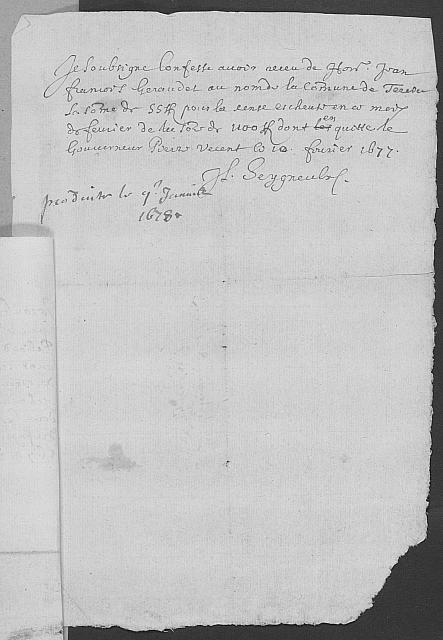 Je soubsigne Confesse avoir receu de Honr. Jean
francois Geraudet au nom de la Comune de
la some de 55 ff pour la cense escheute en ce moys
de fevrier de la some de 1100 ff dont les en quitte le
Gouverneur Pierre ce 10. fevrier 1677.
produite le 9e Janvier
1678.